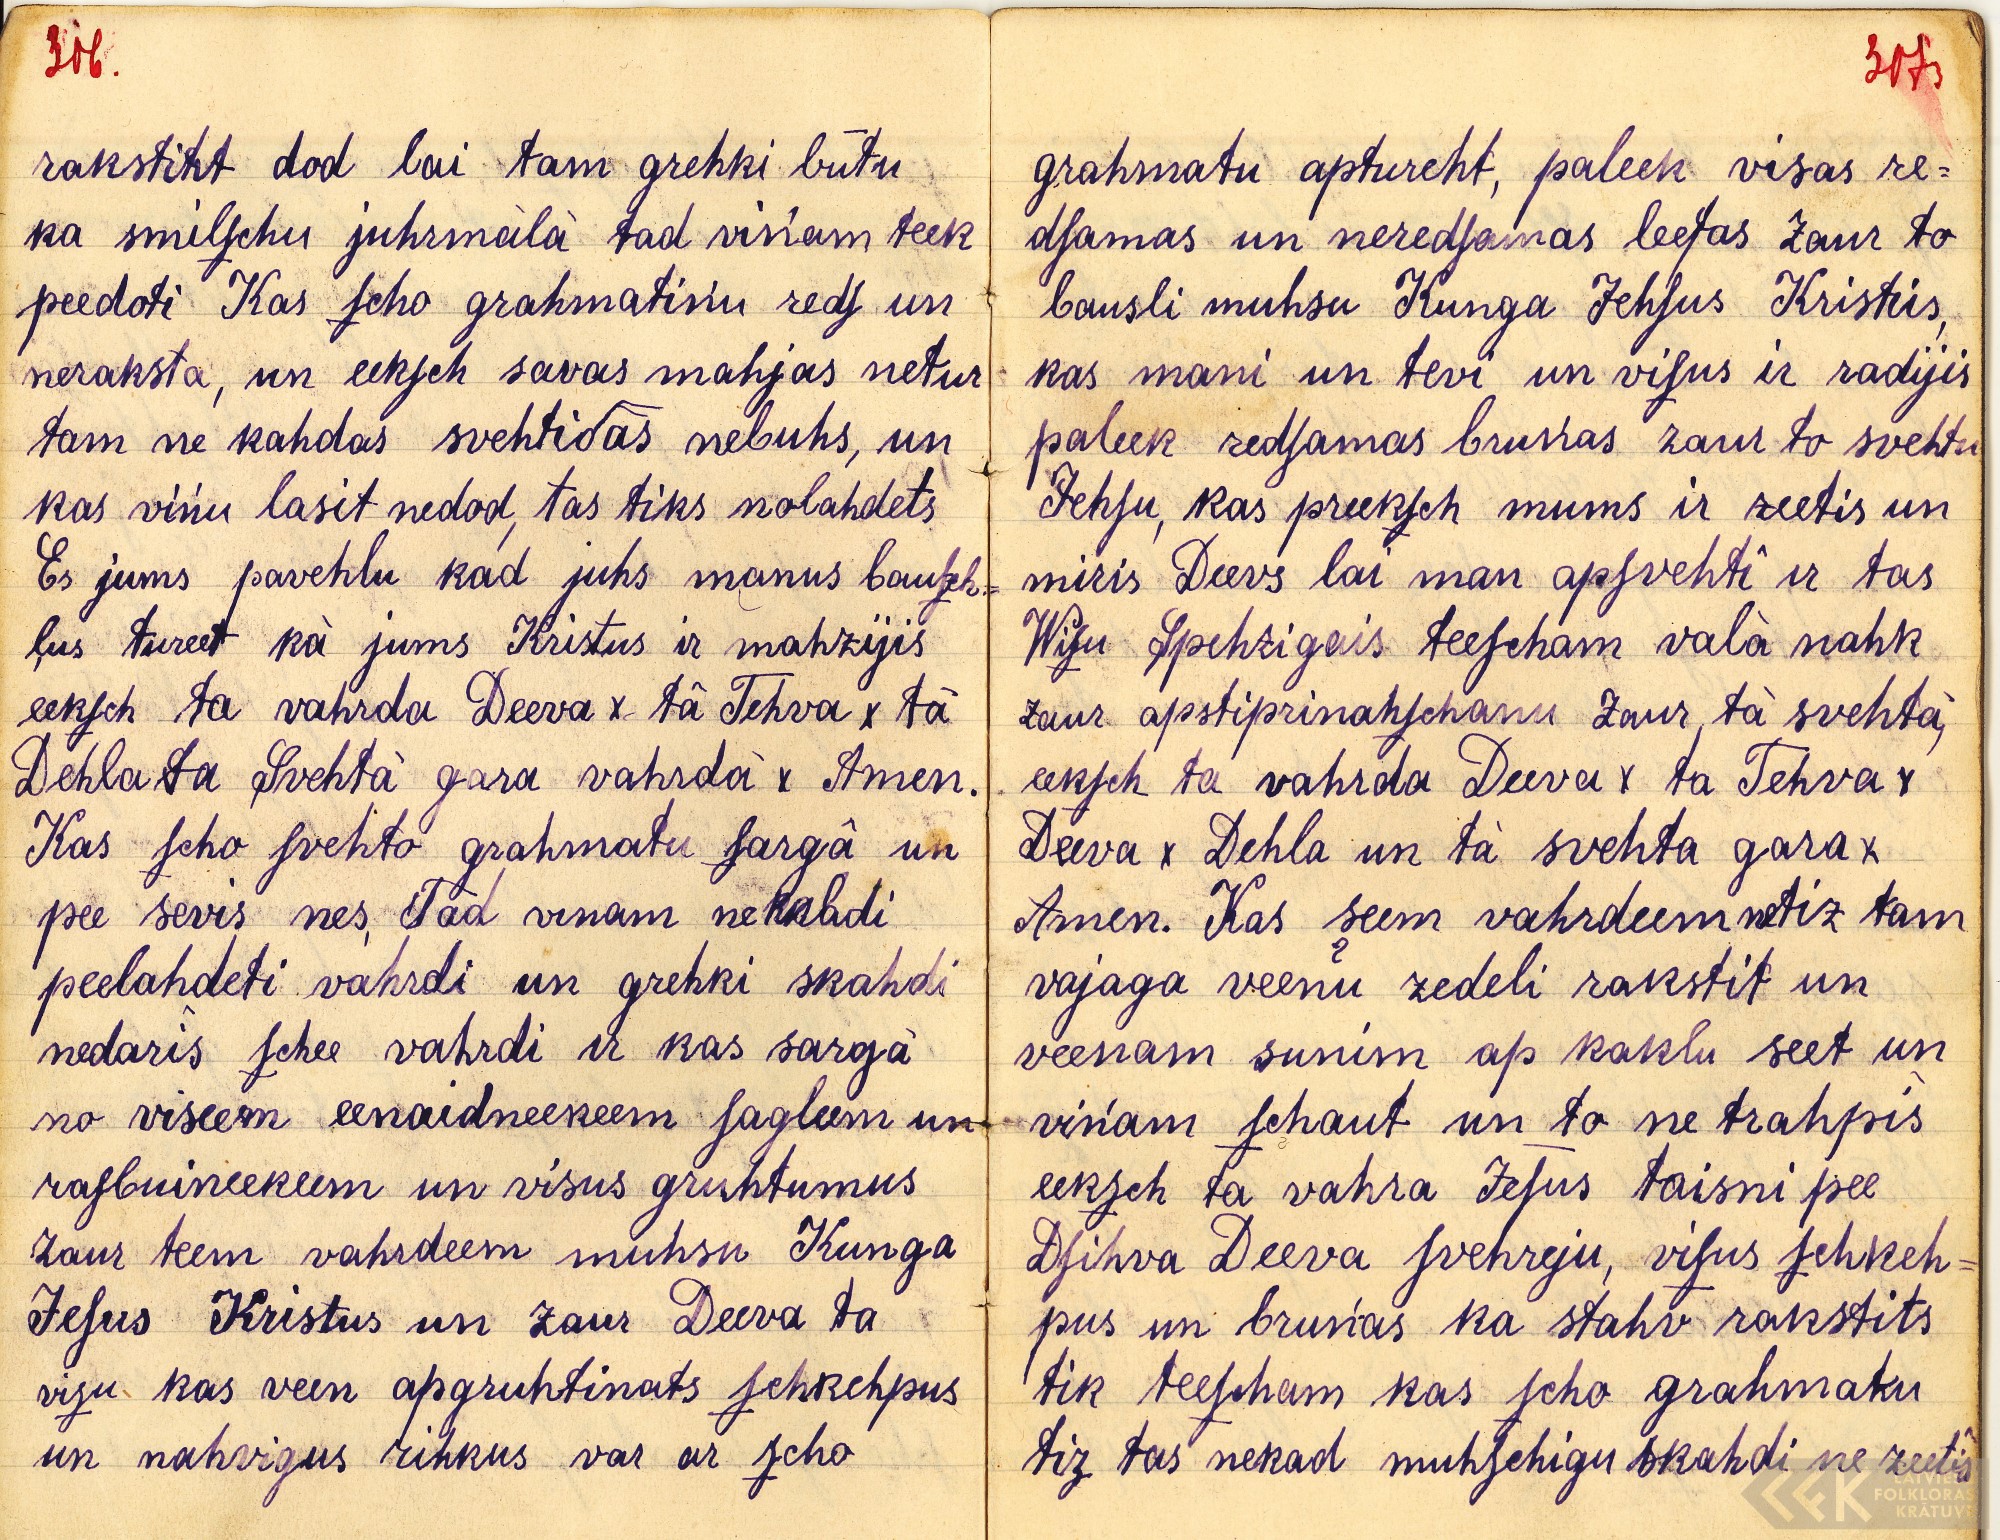 306.
rakstiht dod lai tam grehki būtu
ka smilſchu juhrmàlà tad viņam teek
peedoti Kas ſcho grahmatiņu redſ un
neraksta, un eekſch savas mahjas netur
tam ne kahdas svehtibas nebuhs, un
kas viņu lasit nedod, tas tiks nolahdets
Es jums pavehlu kad juhs manus bauſch=
ļus tureet kà jums Kristus ir mahzijis
eekſch ta vahrda Deeva x tâ Tehva x tà
Dehla ta Svehtà gara vahrdà x Amen.
Kas ſcho ſvehto grahmatu ſargâ un
pee sevis nes, Tad vinam nekahdi
peelahdeti vahrdi un grehki skahdi
nedarîs ſchee vahrdi ir kas sargà
no viseem eenaidneekeem ſagleem un
raſbuineekeem un visus gruhtumus
zaur teem vahrdeem muhsu Kunga
Jeſus Kristus un zaur Deeva ta
viſu kas veen apgruhtinats ſchkehpus
un nahvigus rihkus var ar ſcho
307
grahmatu aptureht, paleek visas re=
dſamas un neredſamas leetas zaur to
bausli muhsu Kunga Jehſus Kristus,
kas mani un tevi un viſus ir radijis
paleek redſamas bruņas zaur to svehtu
Jehſu, kas preekſch mums ir zeetis un
miris Deevs lai man apſvehtî ir tas
Wiſu Spehzigais teeſcham valà nahk
zaur apstiprinahſchanu zaur tà svehtà,
eekſch ta vahrda Deeva x ta Tehva x
Deeva x Dehla un tà svehta gara x
Amen. Kas ſeem vahrdeem netiz tam
vajaga veenu zedeli rakstit un
veenam sunim ap kaklu seet un
viņam ſchaut un to ne trahpìs
eekſch ta vahra Jeſus taisni pee
Dſihva Deeva ſvehreju, viſus ſchkeh=
pus un bruņas ka stahv rakstits
tik teeſcham kas ſcho grahmatu
tiz tas nekad muhſchigu skahdi ne zeetîs
FOLKLORAS
KRĀTUVE